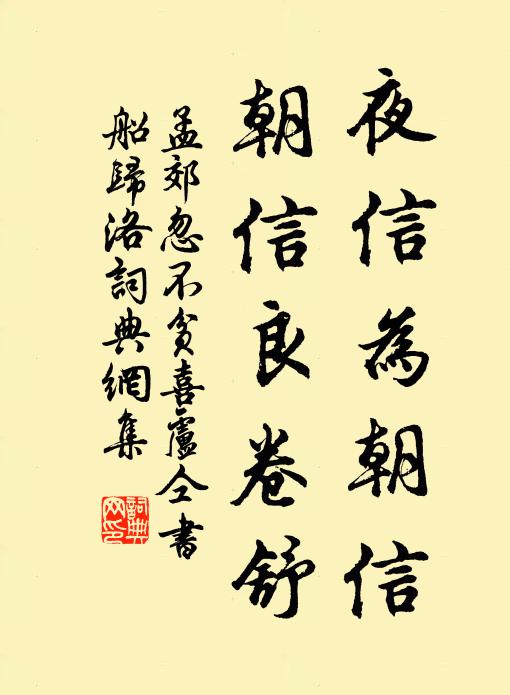 夜信為朝信
朝信良卷舒
孟郊忽不貧喜盧仝書
船歸洛詞典網集
詞典
网印